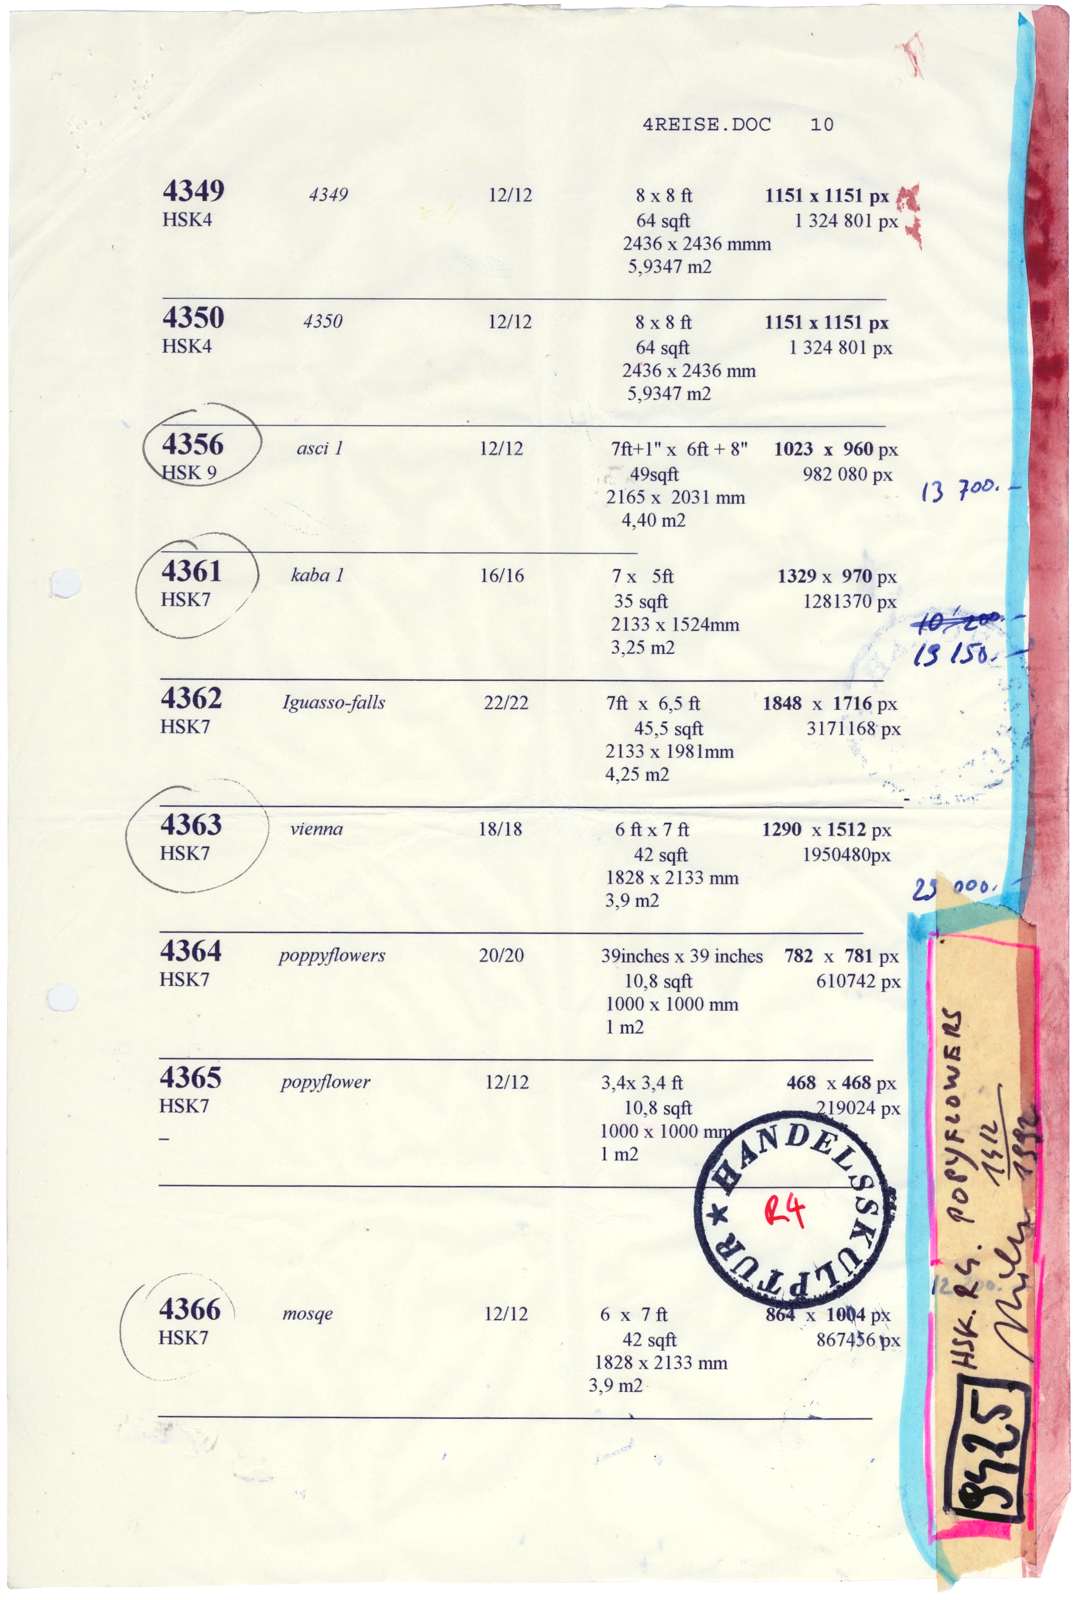 4REISE.DOC 10
4349 4349 12/12 8 x 8 ft 1151 x 1151 px
HSK4 64 sqft 1 324 801 px
2436 x 2436 mmm
5,9347 m2
4350 4350 12/12 8 x 8 ft 1151 x 1151 px
HSK4 64 sqft 1 324 801 px
2436 x 2436 mm
5,9347 m2
4356 asci 1 12/12 7ft+1" x 6ft + 8" 1023 x 960 px
HSK 9 49sqft 982 080 px
13 700.-
2165 x 2031 mm
4,40 m2
4361 kaba 1 16/16 7 x 5ft 1329 x 970 px
HSK7 35 sqft 1281370 px
10 200.-
2133 x 1524mm
19 150.-
3,25 m2
4362 Iguasso-falls 22/22 7ft x 6,5 ft 1848 x 1716 px
HSK7 45,5 sqft 3171168 px
2133 x 1981mm
4,25 m2
4363 vienna 18/18 6 ft x 7 ft 1290 x 1512 px
HSK7 42 sqft 1950480px
1828 x 2133 mm
29 000.-
3,9 m2
4364 poppyflowers 20/20 39inches x 39 inches 782 x 781 px
HSK7 10,8 sqft 610742 px
1000 x 1000 mm
1 m2
4365 popyflower 12/12 3,4x 3,4 ft 468 x 468 px
HSK7 10,8 sqft 219024 px
–
1000 x 1000 mm
1 m2
HANDELSSKULPTUR ★
R4
4366 mosqe 12/12 6 x 7 ft 864 x 1004 px
HSK7 42 sqft 867456 px
1828 x 2133 mm
3,9 m2
9425 HSK.R4. POPYFLOWERS
1992